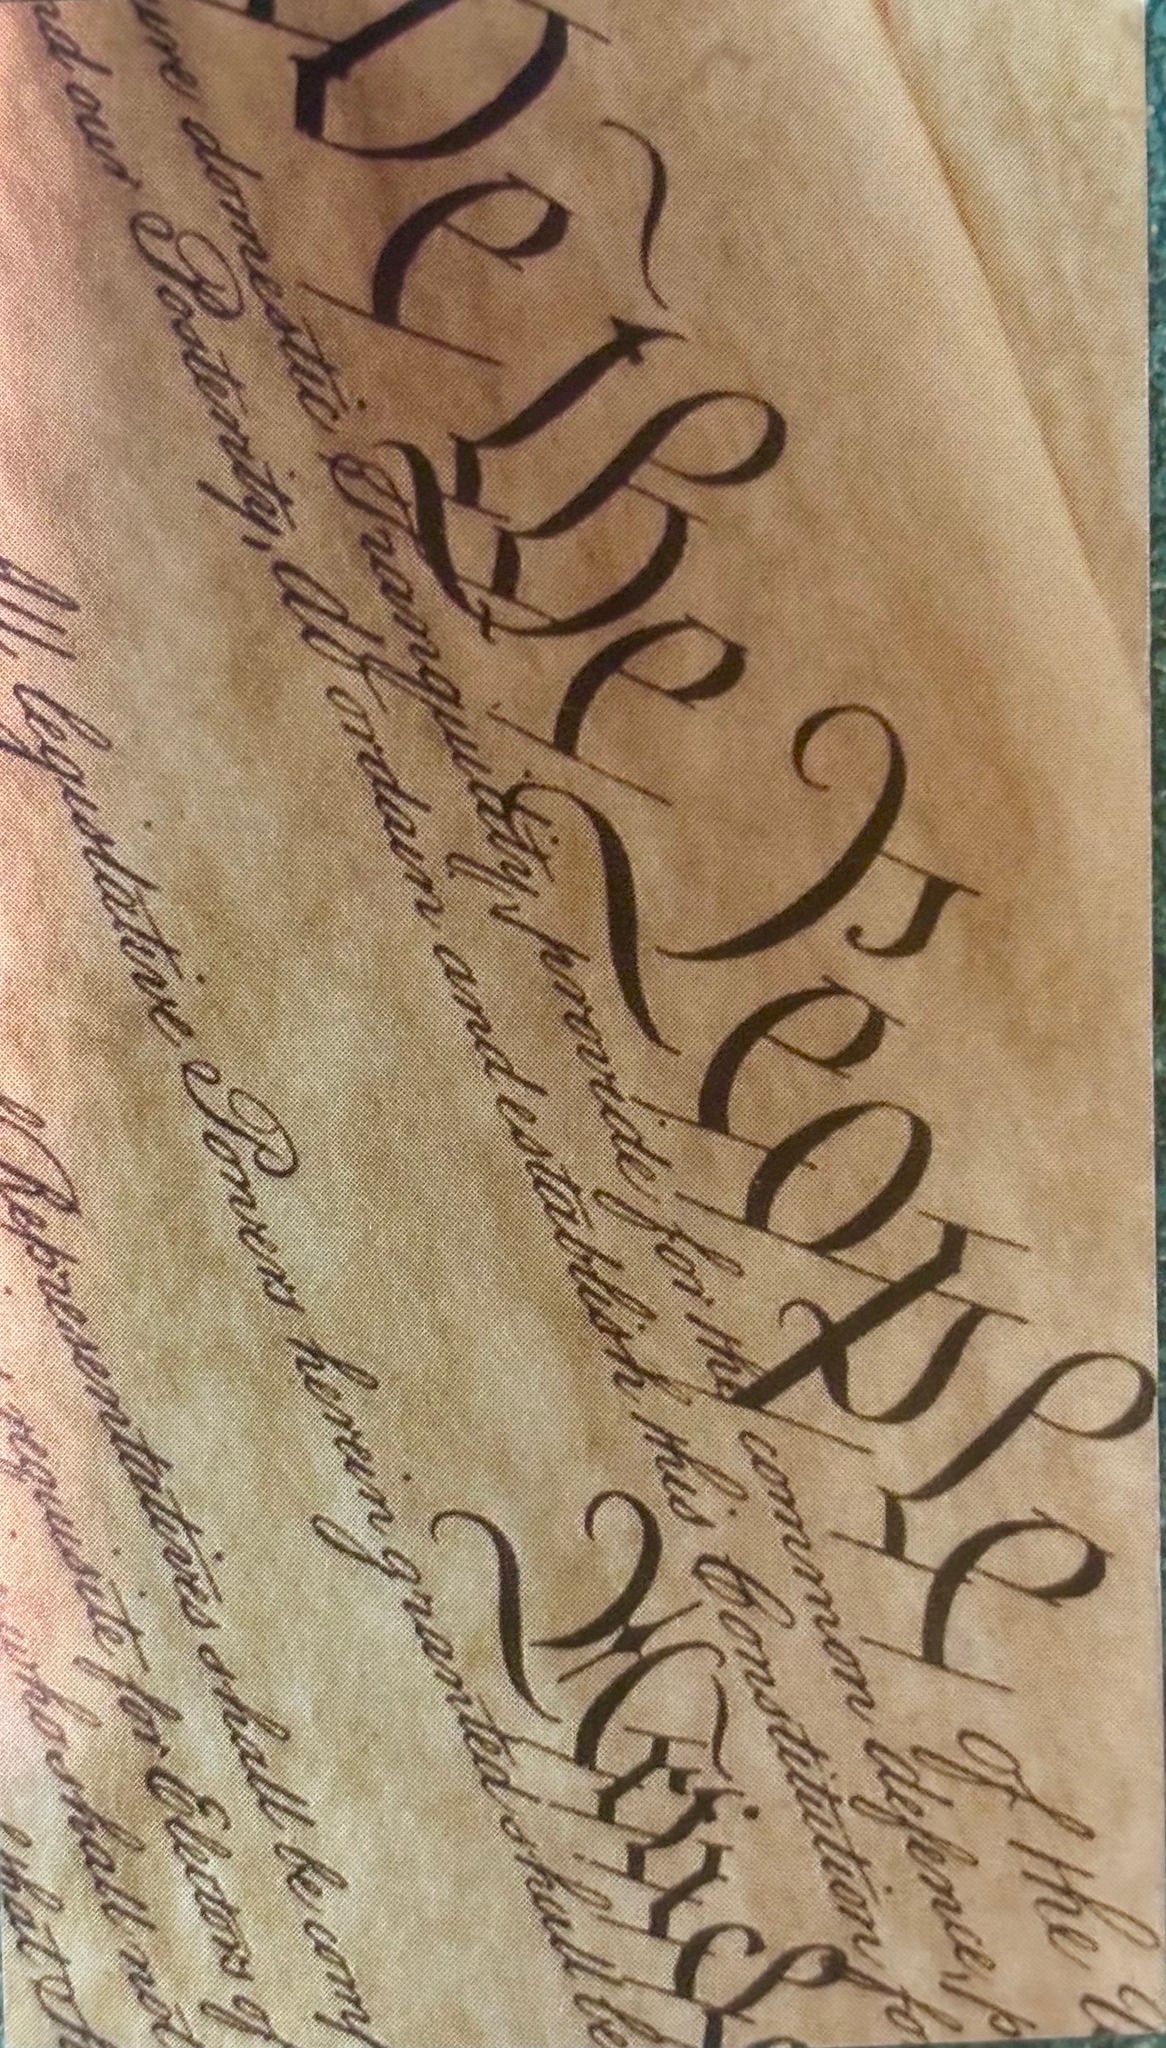 We the People
of the
domestic Tranquility, provide for the common defence,
and our Posterity, do ordain and establish this Constitution fo
Article
All legislative Powers herein granted shall be
Representatives shall be com
requisite for Electors of
who shall not
that